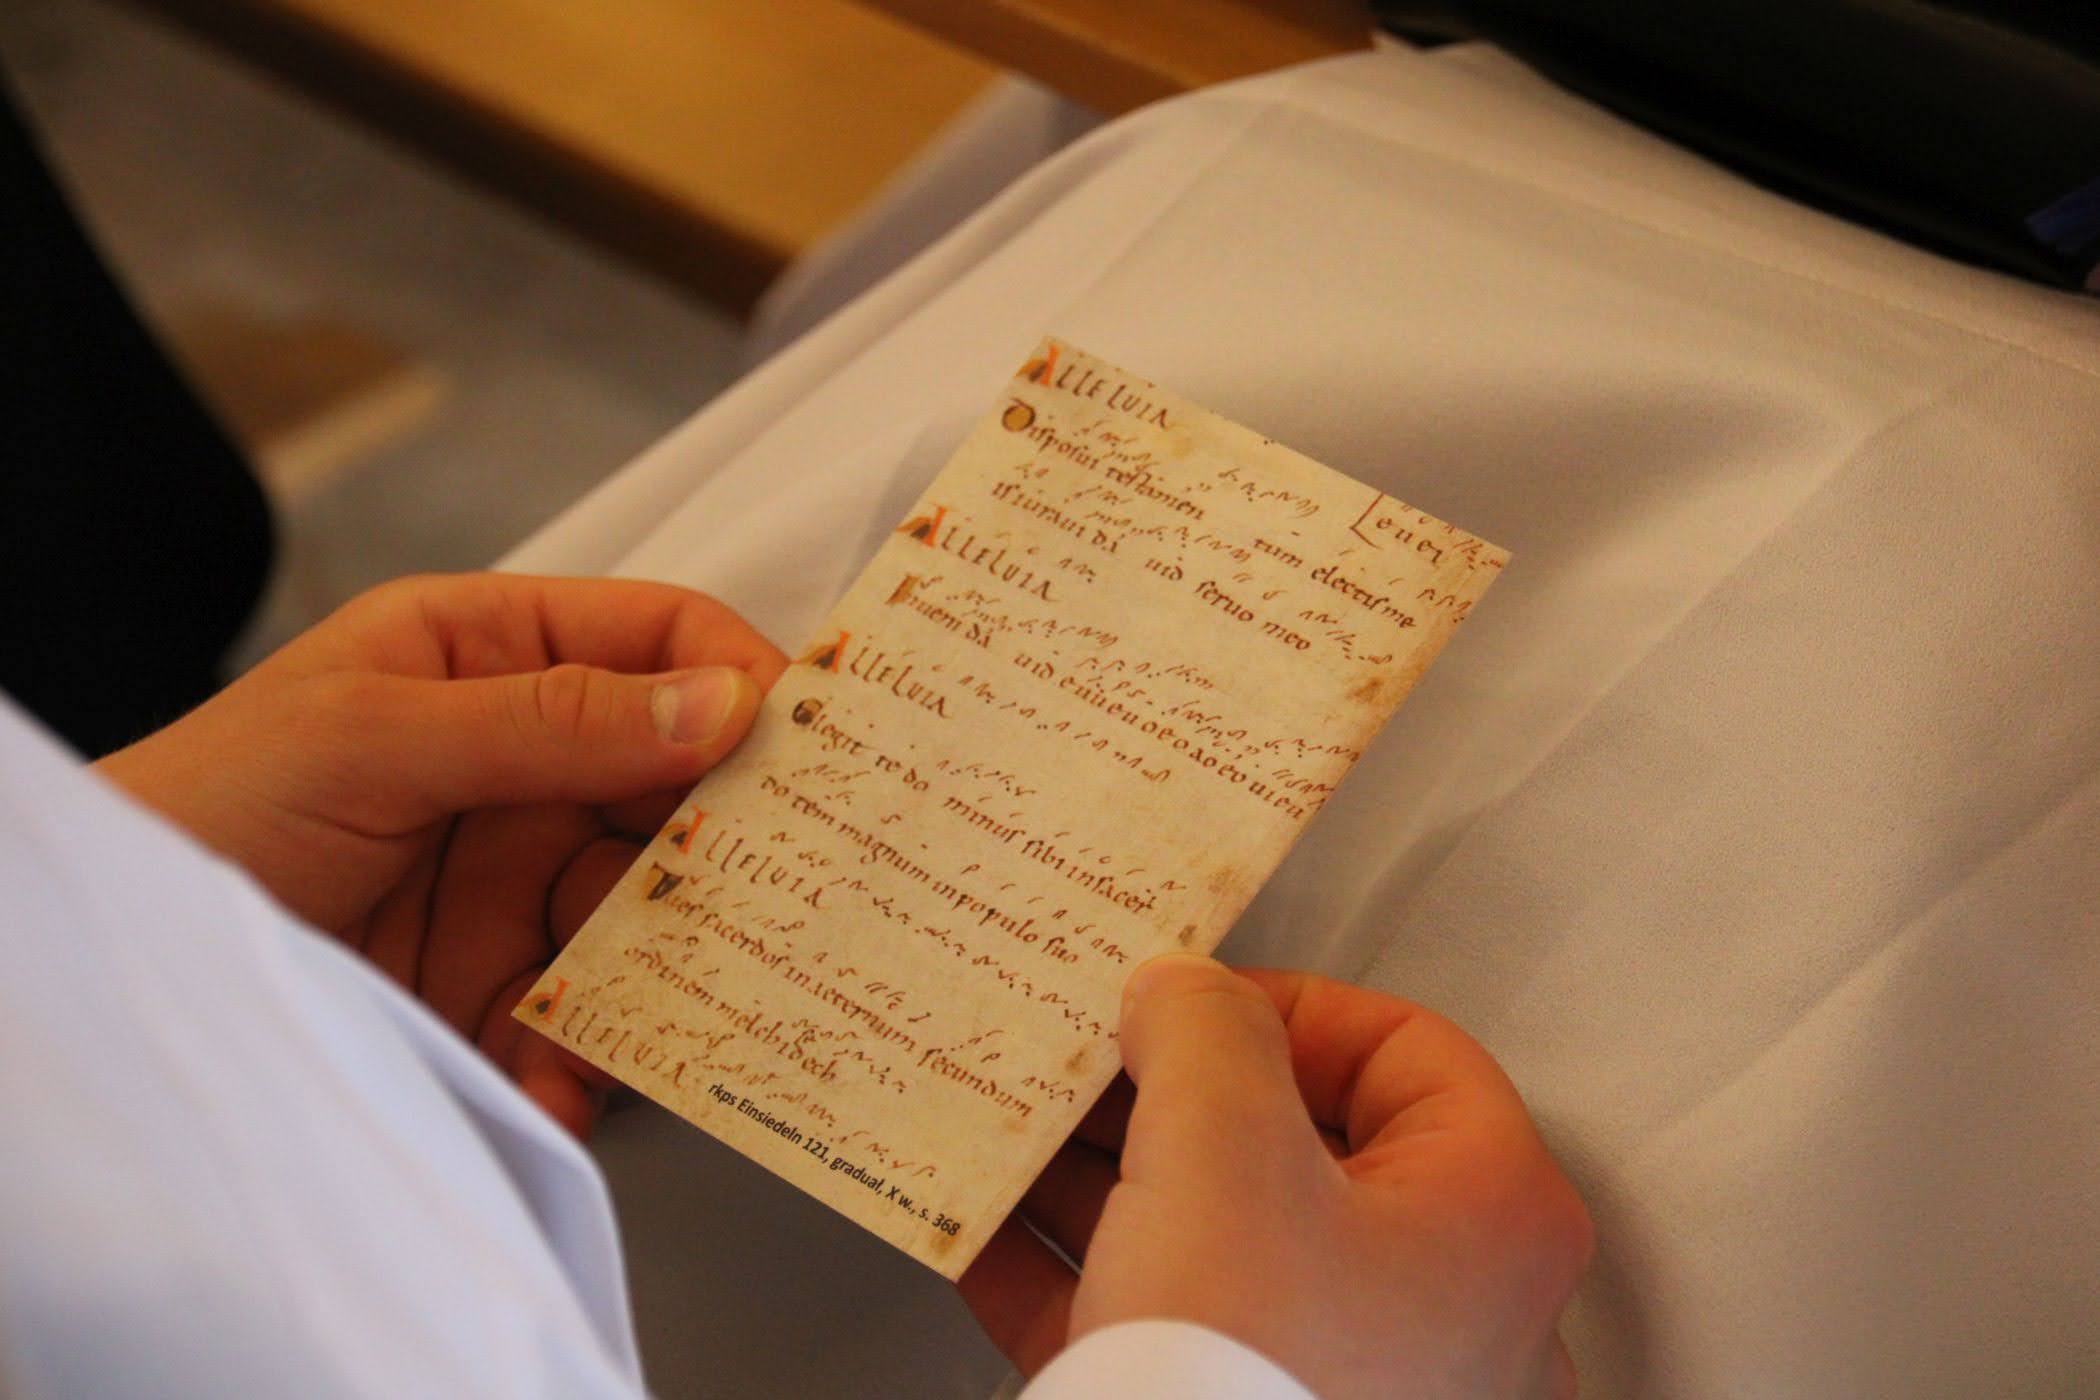 ALLELUIA
Disposui testamen tum electis me
[euer
is iuraui dá uid seruo meo
ALLELUIA
Inueni dá uid
ALLELUIA
Elegit te do minus sibi in sacer
do tem magnum in populo suo
ALLELUIA
Tu es sacerdos in aeternum secundum
ordinem melchisedech
ALLELUIA
rkps Einsiedeln 121, graduał, X w., s. 368